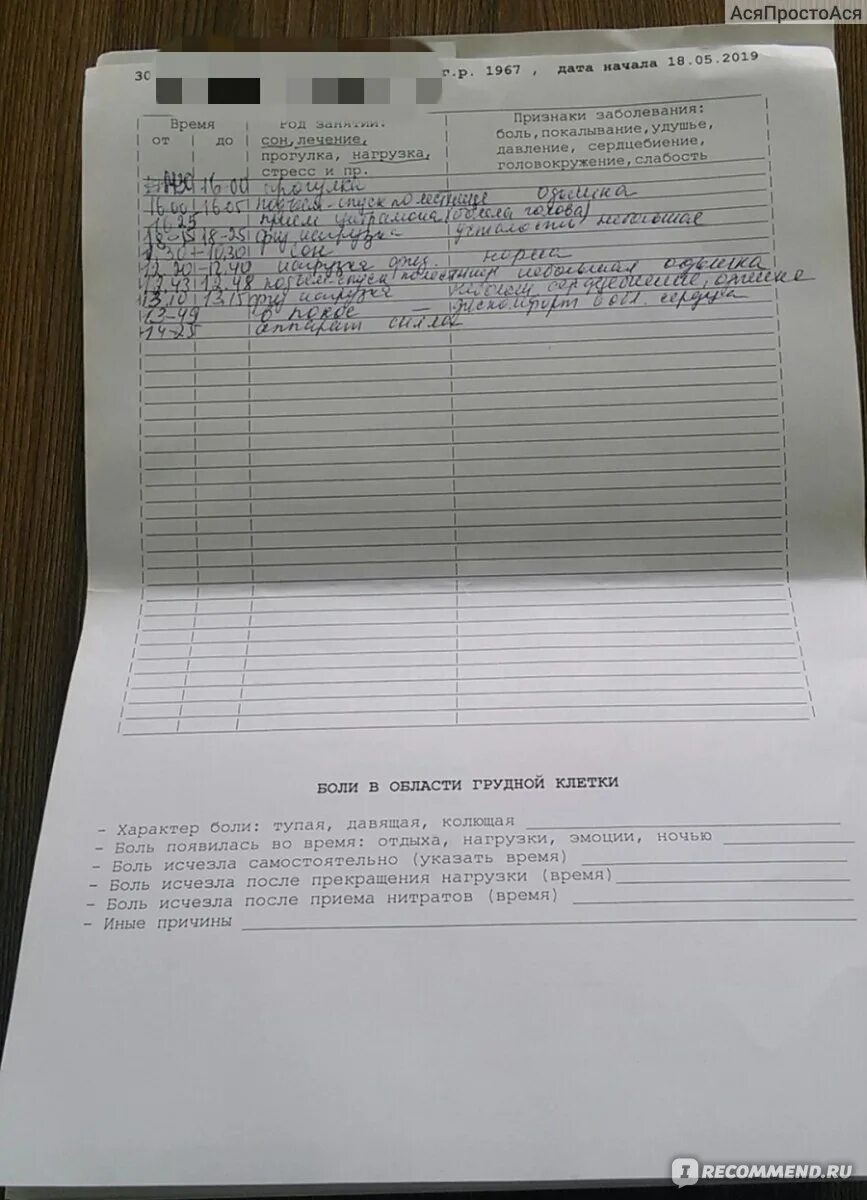 АсяПростоАся
30 г.р. 1967 , дата начала 18.05.2019
Время
от до
Род занятий:
сон, лечение,
прогулка, нагрузка,
стресс и пр.
Признаки заболевания:
боль, покалывание, удушье,
давление, сердцебиение,
головокружение, слабость
16.00 прогулки
16.00 16.05 подъем-спуск по лестнице одышка
16.25 прием цитрамона (болела голова)
18-15 18-25 физ нагрузка усталость небольшая
10.30 сон
12.20-12.40 нагрузка физ. норма
12.43 12.48 подъем-спуск по лестнице небольшая одышка
13.10 13.15 физ нагрузка сердцебиение, одышка
13-49 в покое — дискомфорт в обл. сердца
14-25 аппарат сняла
БОЛИ В ОБЛАСТИ ГРУДНОЙ КЛЕТКИ
- Характер боли: тупая, давящая, колющая
- Боль появилась во время: отдыха, нагрузки, эмоции, ночью
- Боль исчезла самостоятельно (указать время)
- Боль исчезла после прекращения нагрузки (время)
- Боль исчезла после приема нитратов (время)
- Иные причины
IRECOMMEND.RU